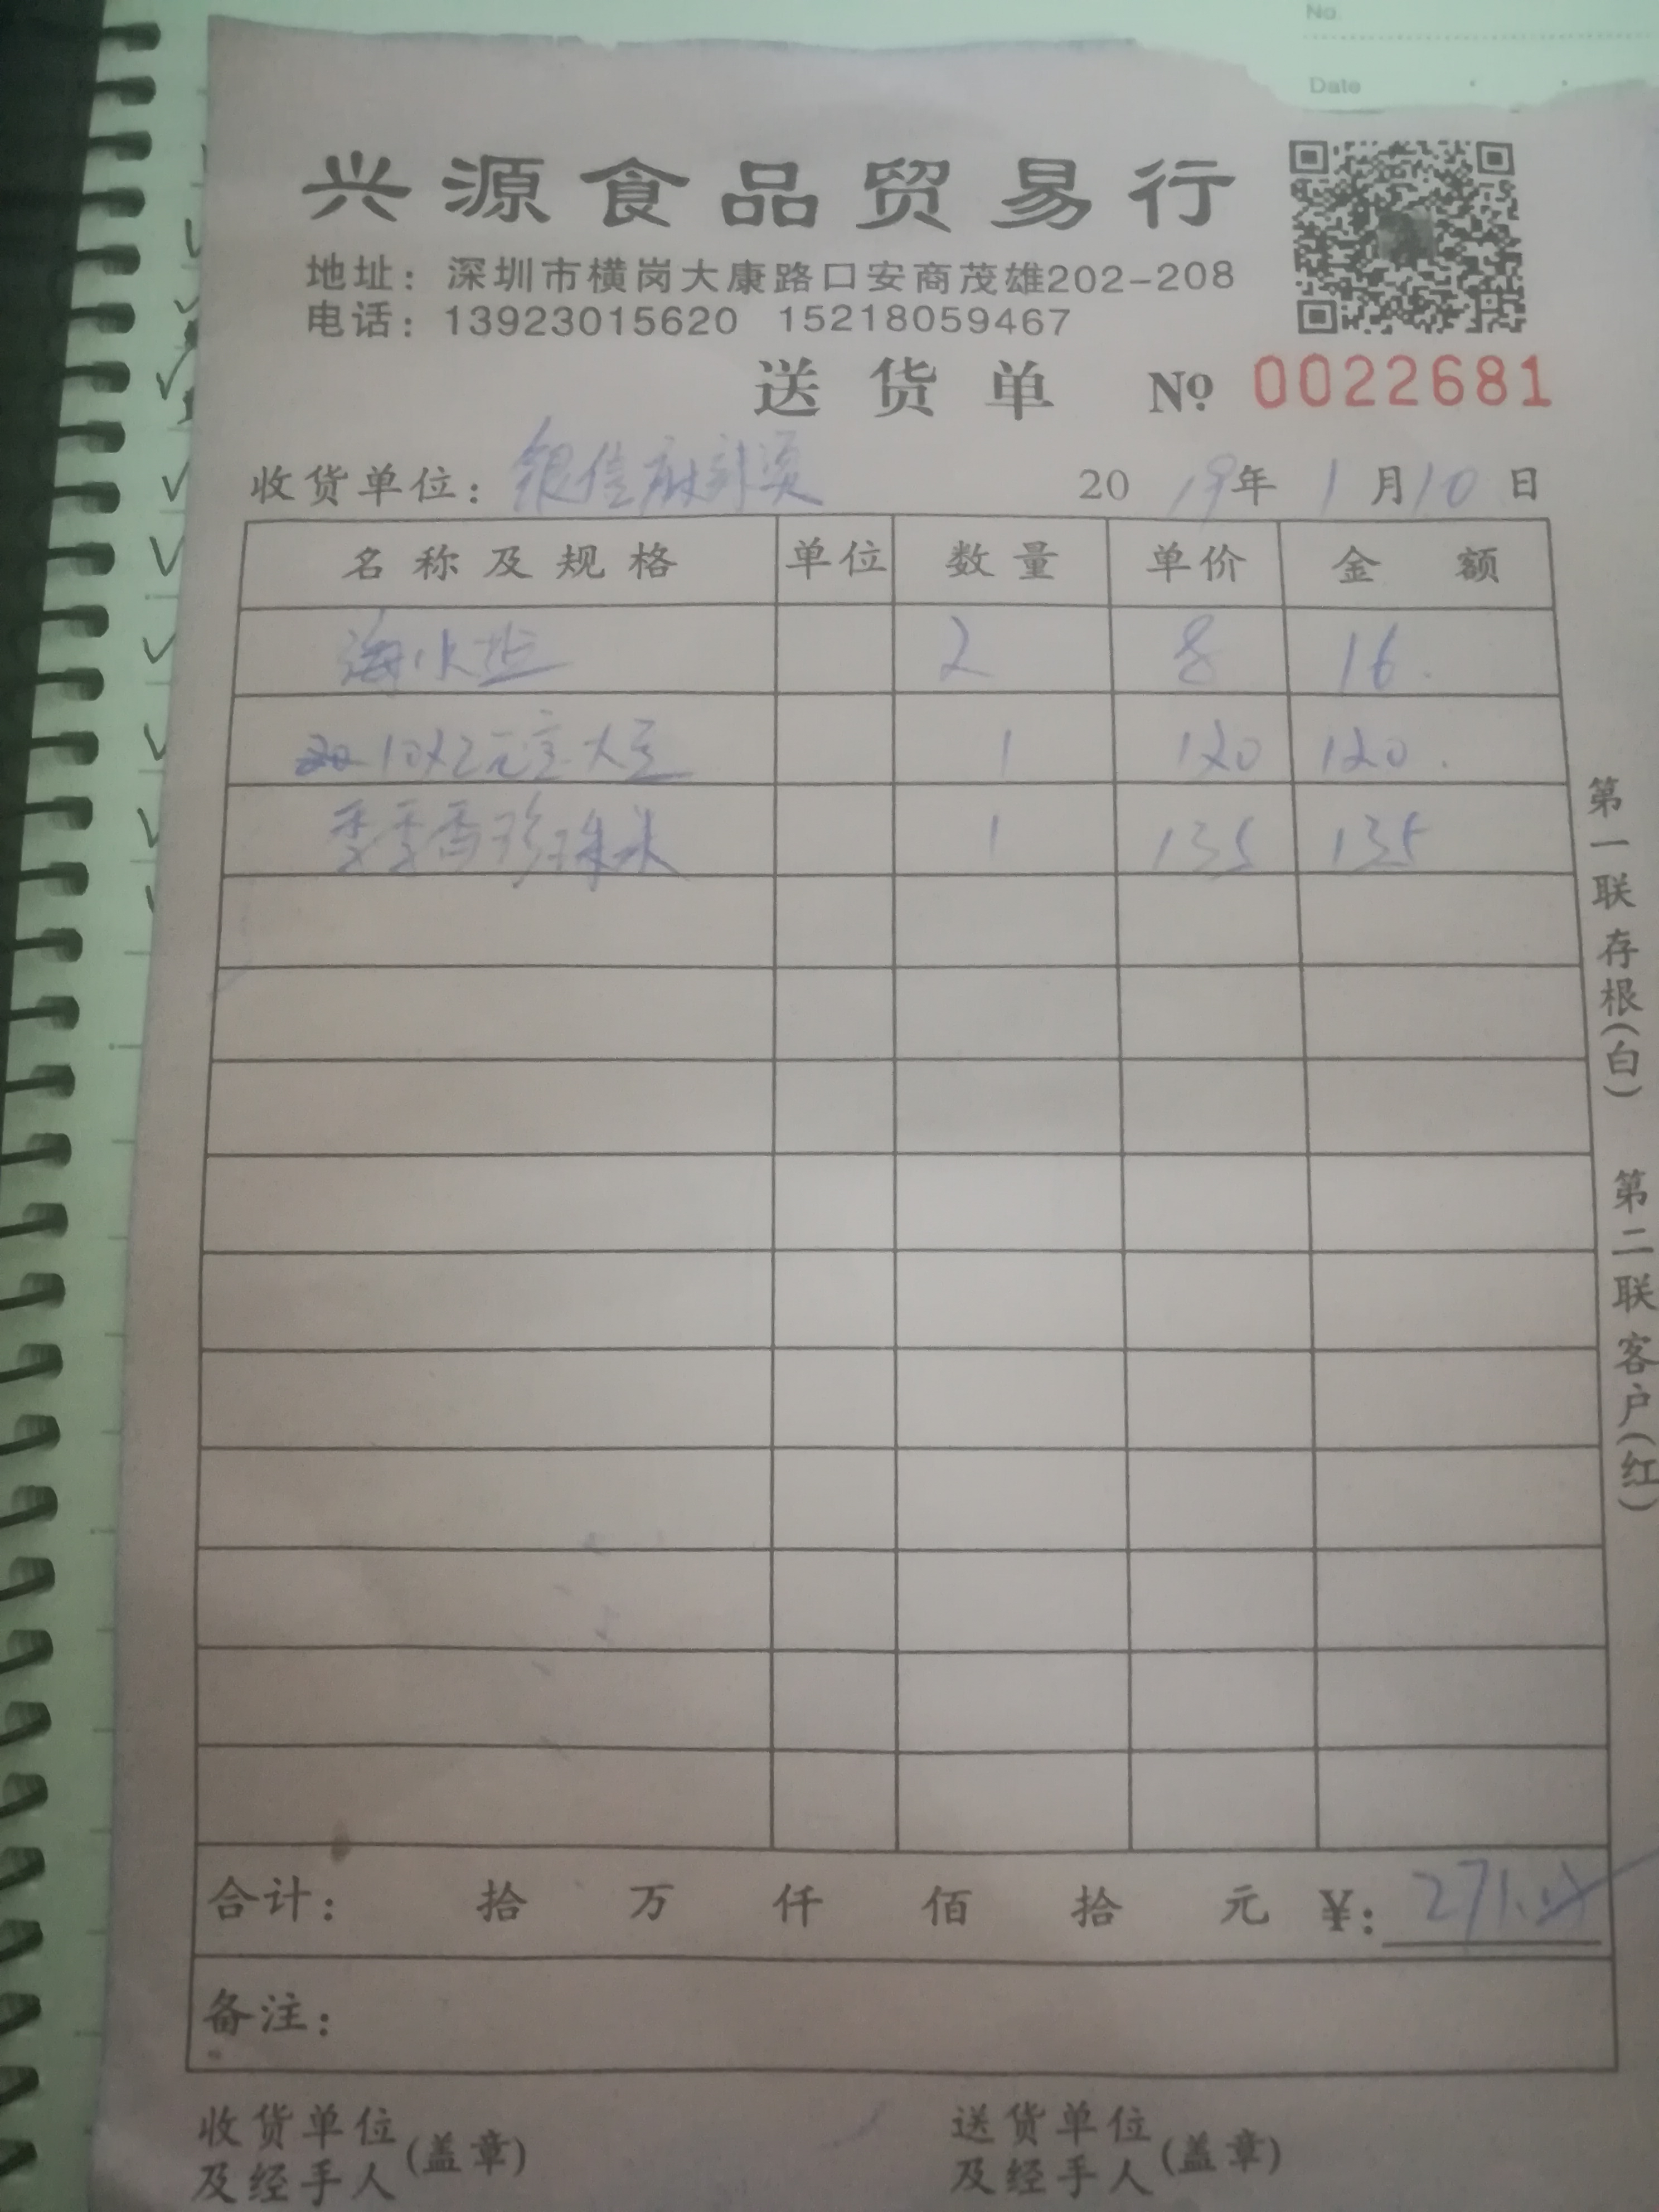 No.
Date
兴源食品贸易行
地址：深圳市横岗大康路口安商茂雄202-208
电话：13923015620 15218059467
送货单 No 0022681
收货单位：银信麻辣烫 2019年1月10日
名称及规格 单位 数量 单价 金额
海水盐 2 8 16.
10×2元宝大豆 1 120 120.
季季香珍珠米 1 135 135
合计： 拾 万 仟 佰 拾 元 ¥：271.
备注：
收货单位及经手人(盖章) 送货单位及经手人(盖章)
第一联存根(白) 第二联客户(红)